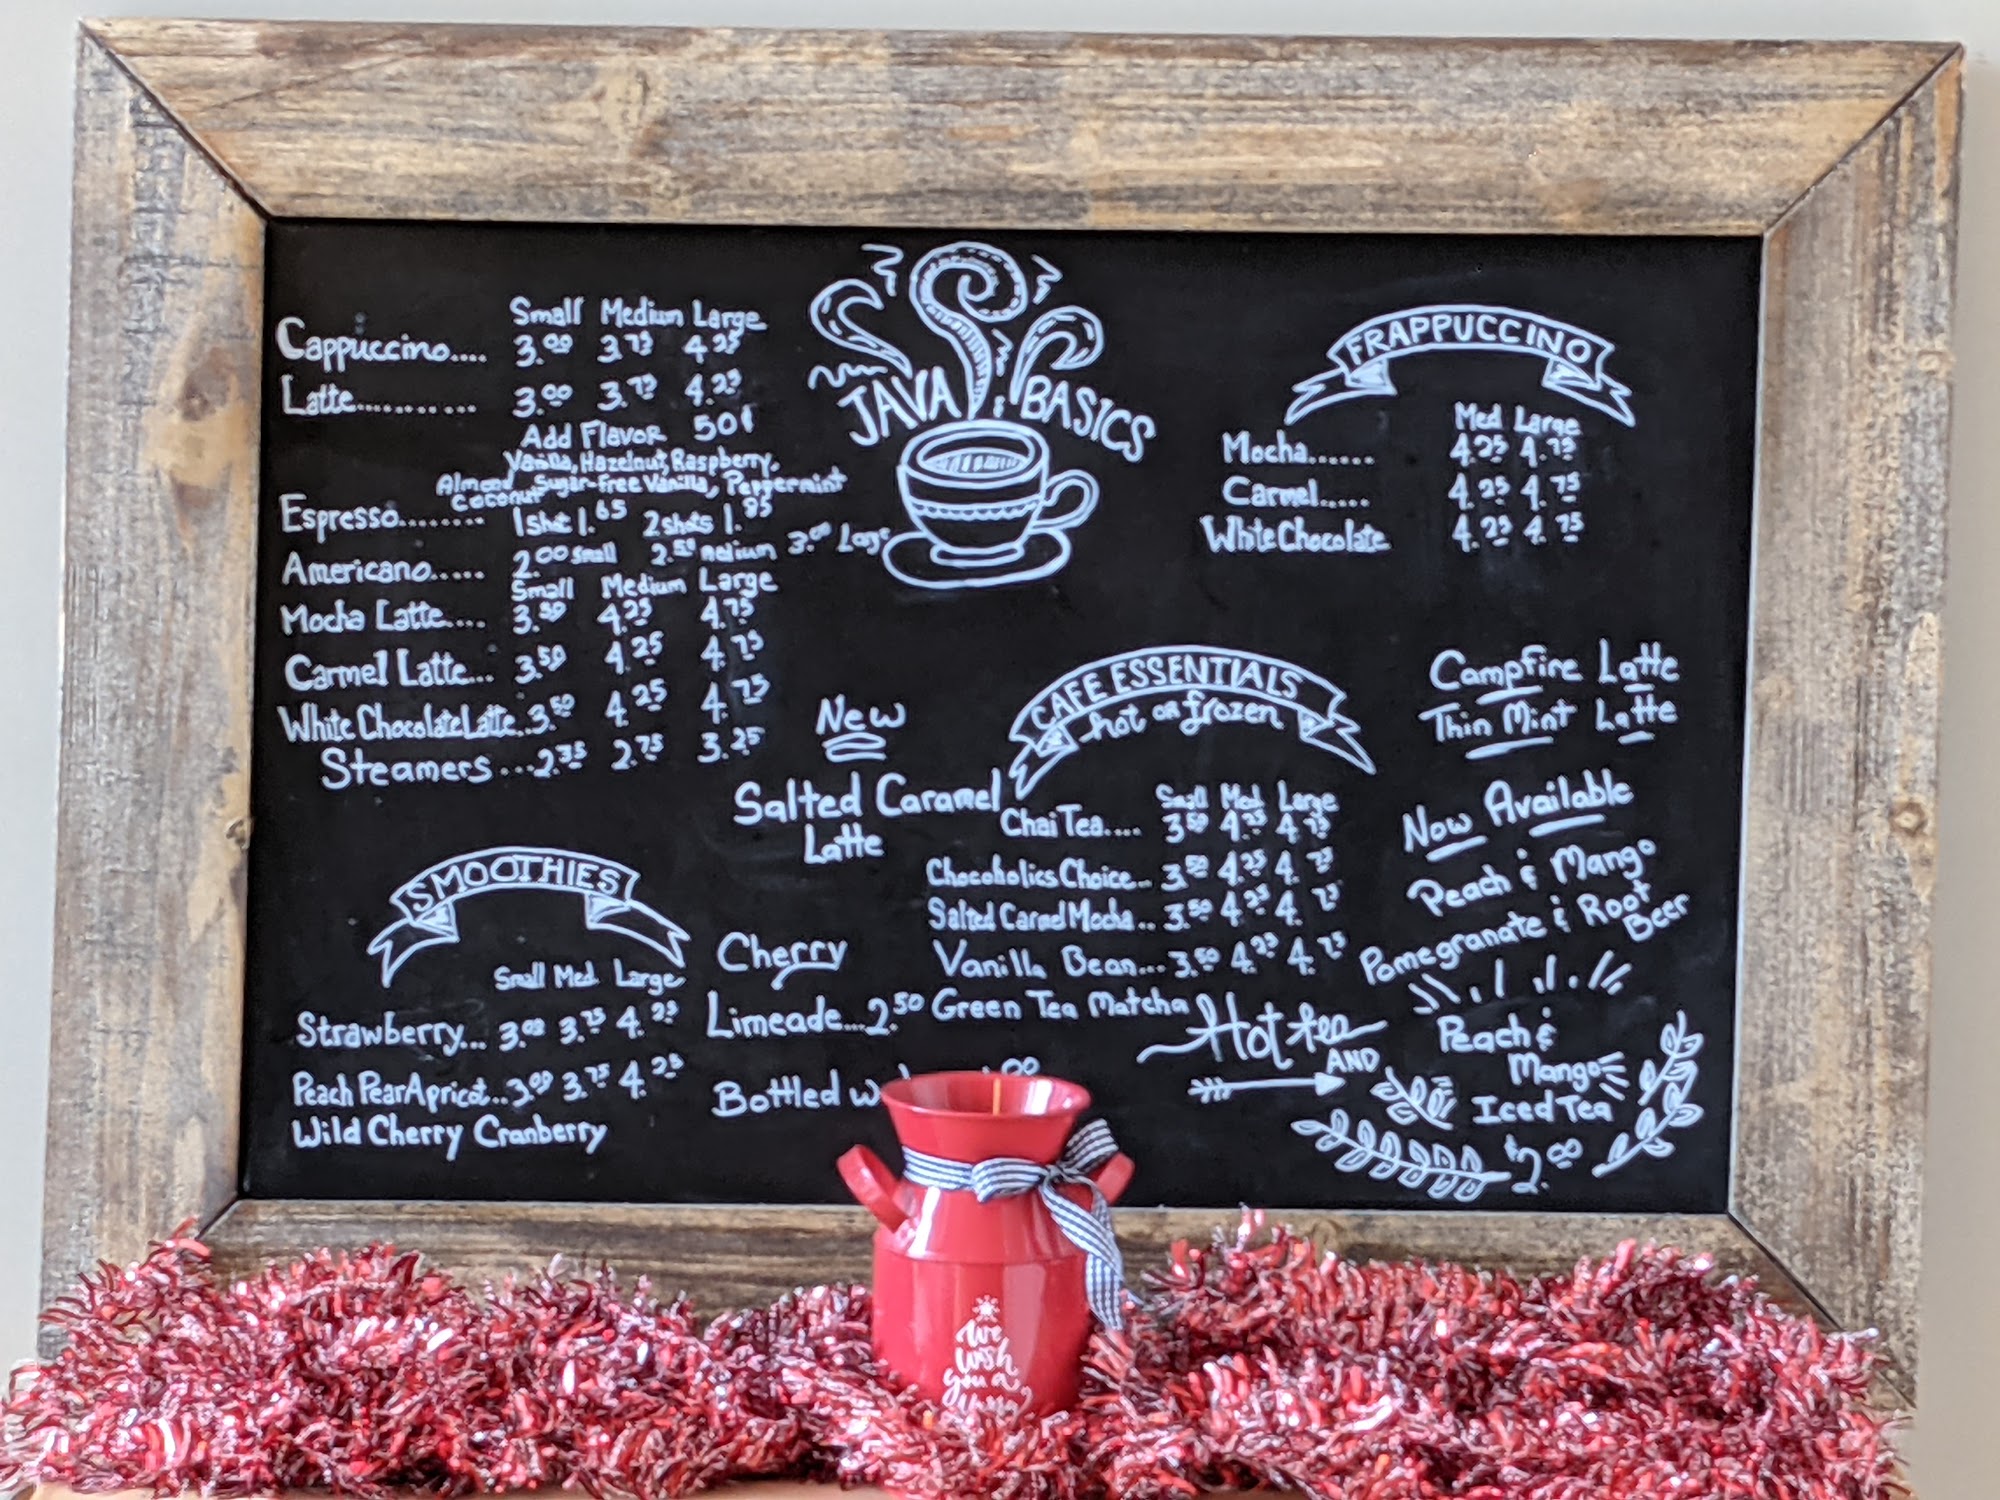 JAVA BASICS
Small Medium Large
Cappuccino.... 3.00 3.75 4.25
Latte........... 3.00 3.75 4.25
Add Flavor 50¢
Vanilla, Hazelnut, Raspberry,
Almond Sugar-free Vanilla, Peppermint
Coconut
Espresso........ 1 shot 1.65 2 shots 1.85
Americano..... 2.00 small 2.50 medium 3.00 Large
Small Medium Large
Mocha Latte.... 3.50 4.25 4.75
Carmel Latte... 3.50 4.25 4.75
White Chocolate Latte.. 3.50 4.25 4.75
Steamers ... 2.35 2.75 3.25
SMOOTHIES
Small Med. Large
Strawberry... 3.00 3.75 4.25
Peach Pear Apricot.. 3.00 3.75 4.25
Wild Cherry Cranberry
New
Salted Caramel
Latte
Cherry
Limeade...2.50
Bottled
FRAPPUCCINO
Med Large
Mocha...... 4.25 4.75
Carmel..... 4.25 4.75
White Chocolate 4.25 4.75
CAFE ESSENTIALS
hot or frozen
Small Med Large
Chai Tea.... 3.50 4.25 4.75
Chocoholics Choice.. 3.50 4.25 4.75
Salted Carmel Mocha.. 3.50 4.25 4.75
Vanilla Bean... 3.50 4.25 4.75
Green Tea Matcha
Campfire Latte
Thin Mint Latte
Now Available
Peach & Mango
Pomegranate & Root
Beer
Hot tea
AND
Peach &
Mango
Iced Tea
$2.00
We
wish
you a